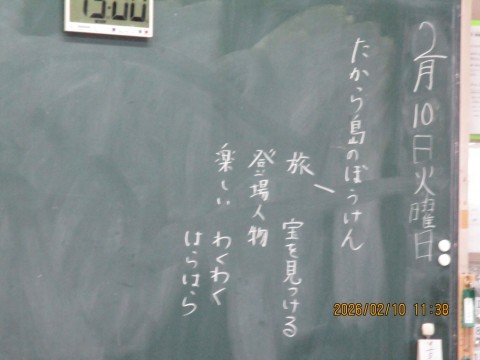 2月10日火曜日
たから島のぼうけん
旅 宝を見つける
登場人物
楽しい わくわく
はらはら
15:00
2026/02/10 11:38